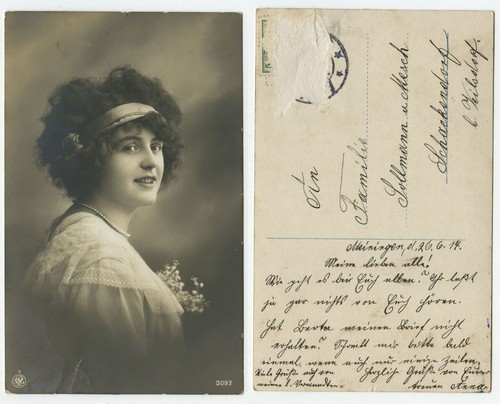 3093
An
Familie
Sollmann u. Mesch
Schackendorf
b. Veilsdorf.
Meiningen, d. 26. 6. 14.
Meine lieben alle!
Wie geht es bei Euch allen? Ihr laßt
ja gar nichts von Euch hören.
Hat Berta meinen Brief nicht
erhalten? Schreibt mir bitte bald
einmal, wenn auch nur einige Zeilen.
Viele Grüße auch von
meinen l. Verwandten.
Herzliche Grüße von Eurer
treuen Anna.